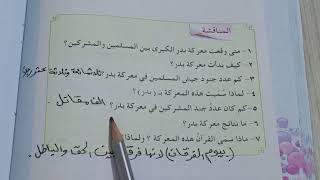 المناقشة
١- متى وقعت معركة بدر الكبرى بين المسلمين والمشركين؟
٢- كيف بدأت معركة بدر؟
٣- كم عدد جنود جيش المسلمين في معركة بدر؟ ثلاثمائة وثلاثة عشر
٤- لماذا سميت هذه المعركة بـ (بدر)؟
٥- كم كان عدد جند المشركين في معركة بدر؟ الف مقاتل.
٦- ما نتائج معركة بدر؟
٧- ماذا سمى القرآن هذه المعركة؟ ولماذا؟
(بيوم الفرقان) لانها فرقت بين الحق والباطل.